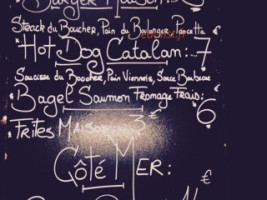 Burger Maison
Steack du Boucher, Pain du Boulanger, Pancetta
* Hot Dog Catalan: 7
Saucisse du Boucher, Pain Viennois, Sauce Barbecue
* Bagel Saumon Fromage Frais: 6 €
* Frites Maison 3 €
Côté Mer:
€